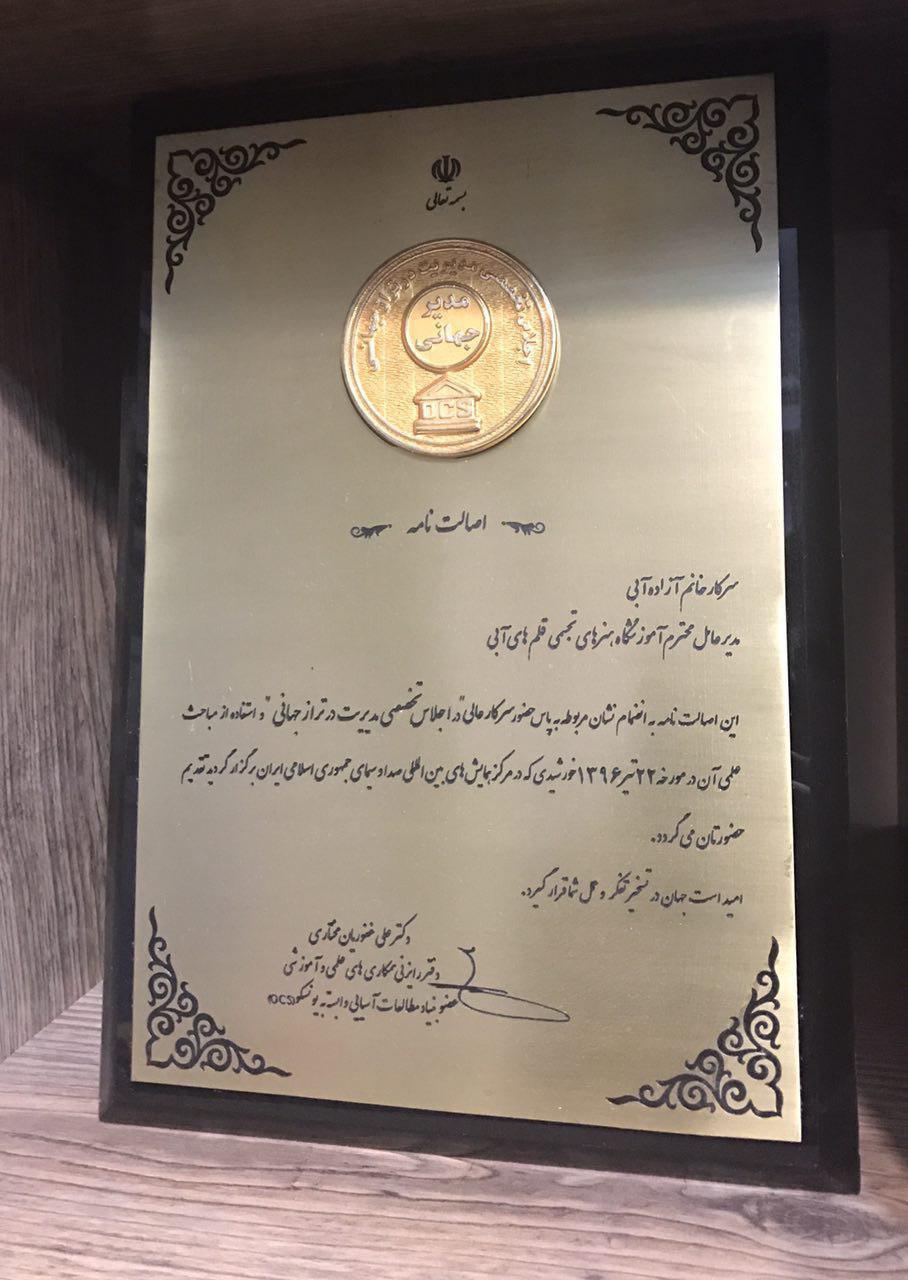 بسمه تعالی
اجلاس تخصصی مدیریت در تراز جهانی
مدیر
جهانی
OCS
اصالت نامه
سرکار خانم آزاده آبی
مدیر عامل محترم آموزشگاه هنرهای تجسمی قلم های آبی
این اصالت نامه به انضمام نشان مربوطه به پاس حضور سرکار عالی "در اجلاس تخصصی مدیریت در تراز جهانی" و استفاده از مباحث
علمی آن در مورخه ۲۲ تیر ۱۳۹۶ خورشیدی که در مرکز همایش های بین المللی صدا و سیمای جمهوری اسلامی ایران برگزار گردید تقدیم
حضورتان می گردد.
امید است جهان در تسخیر تفکر و عمل شما قرار گیرد.
دکتر علی غفوریان مختاری
دفتر رایزنی همکاری های علمی و آموزشی
عضو بنیاد مطالعات آسیایی وابسته به یونسکو (OCS)